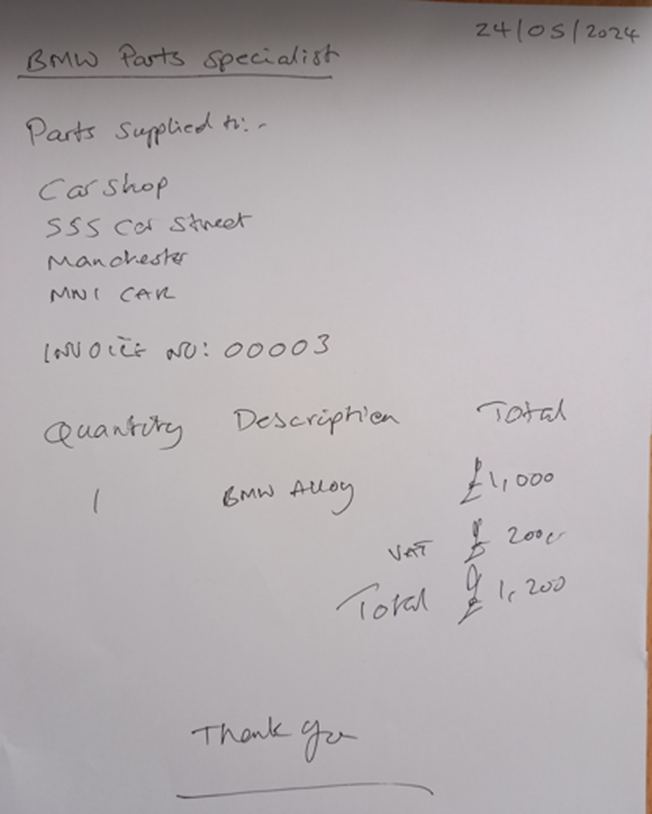 24/05/2024
BMW Parts Specialist
Parts Supplied to:-
Car Shop
555 Car Street
Manchester
MN1 CAR
INVOICE NO: 00003
Quantity Description Total
1 BMW Alloy £1,000
VAT £ 200
Total £ 1,200
Thank you